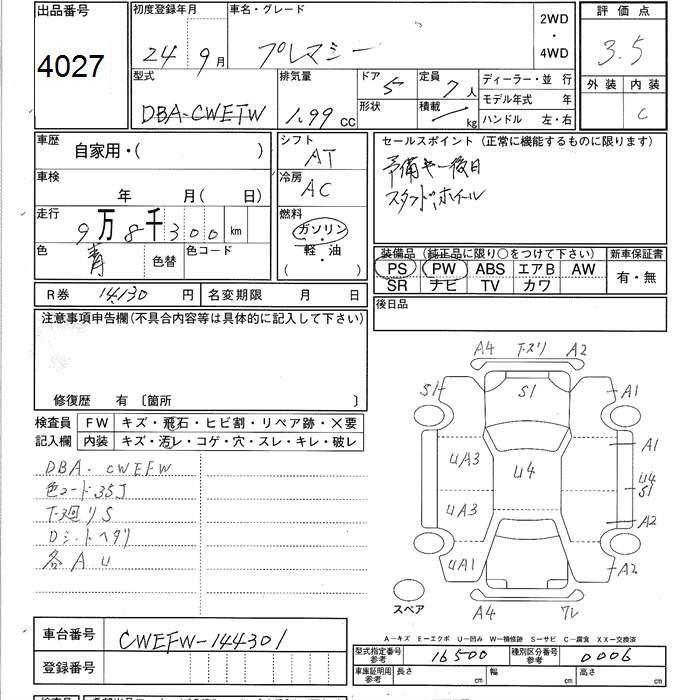 出品番号
4027
初度登録年月
24 9月
車名・グレード
プレマシー
2WD
・
4WD
評価点
3.5
外装 内装
C
型式
DBA-CWEFW
排気量
1.99 cc
ドア 5
形状
定員 7人
積載 kg
ディーラー・並行
モデル年式 年
ハンドル 左・右
車歴
自家用・( )
車検
年 月( 日)
走行
9万8千300 km
色 青 色替
色コード
シフト
AT
冷房
AC
燃料
ガソリン
・
軽・油
( )
セールスポイント(正常に機能するものに限ります)
予備キー後日
スタッド、ホイール
装備品(純正品に限り○をつけて下さい)
新車保証書
PS PW ABS エアB AW
SR ナビ TV カワ
有・無
R券 14,130 円
名変期限 月 日
後日品
注意事項申告欄(不具合内容等は具体的に記入して下さい)
修復歴 有〔箇所 〕
検査員
記入欄
FW キズ・飛石・ヒビ割・リペア跡・×要
内装 キズ・汚レ・コゲ・穴・スレ・キレ・破レ
DBA-CWEFW
色コード35J
T-3回リS
Dシートヘタリ
各AU
A4 T-スリ A2
S1 S1 A1
UA3 U4 A1
U4
S1
UA3 A2
UA1 A2
A4 ワレ
スペア
車台番号
CWEFW-144301
登録番号
A-キズ E-エクボ U-凹み W-補修跡 S-サビ C-腐食 XX-交換済
型式指定番号
参考
16500
種別区分番号
参考
0006
車庫証明用
参考
長さ cm
幅 cm
高さ cm